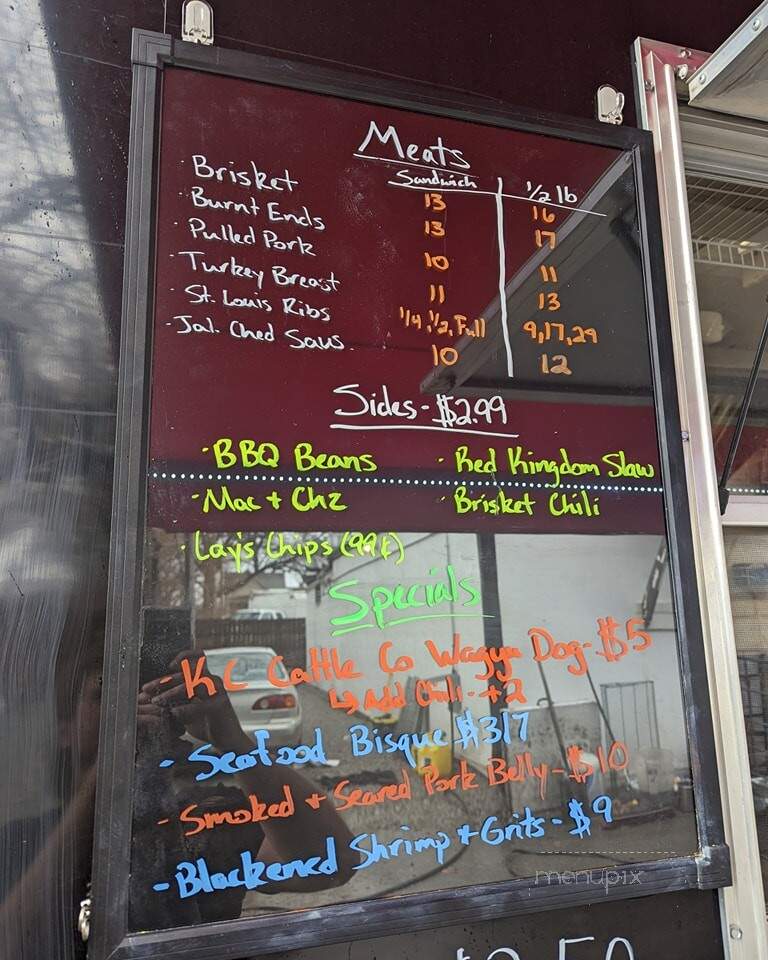 Meats
Sandwich 1/2 lb
· Brisket 13 16
· Burnt Ends 13 17
· Pulled Pork 10 11
· Turkey Breast 11 13
· St. Louis Ribs 1/4, 1/2, Full 9,17,29
· Jal. Ched Saus. 10 12
Sides - $2.99
· BBQ Beans · Red Kingdom Slaw
· Mac + Chz · Brisket Chili
· Lay's Chips (99¢)
Specials
- KC Cattle Co Wagyu Dog - $5
↳ Add Chili - +2
- Seafood Bisque $3/7
- Smoked + Seared Pork Belly - $10
- Blackened Shrimp + Grits - $9
menupix